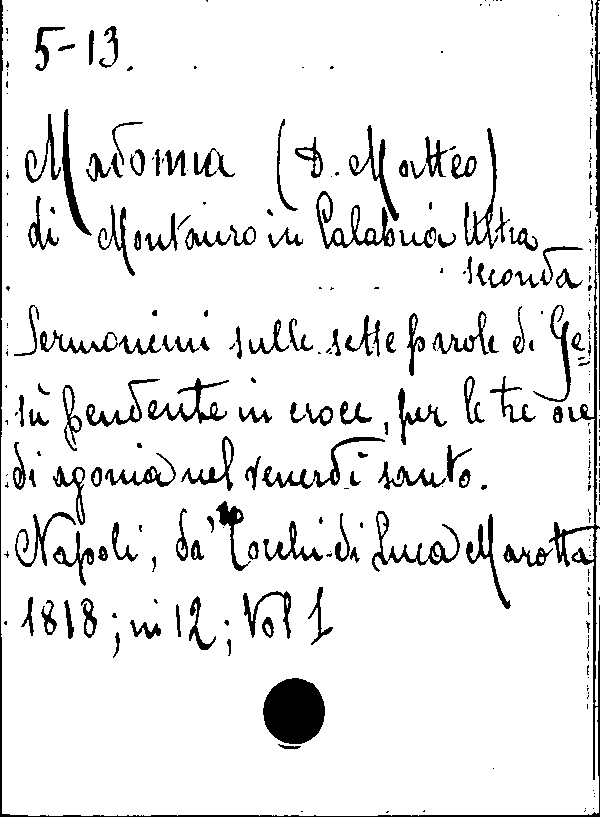 5-13.
Madonna (D. Matteo)
di Montauro in Calabria Ultra
seconda
Sermoncini sulle sette parole di Ge=
sù pendente in croce, per le tre ore
di agonia nel venerdì santo.
Napoli, da' Torchi di Luca Marotta
1818; in 12; Vol 1